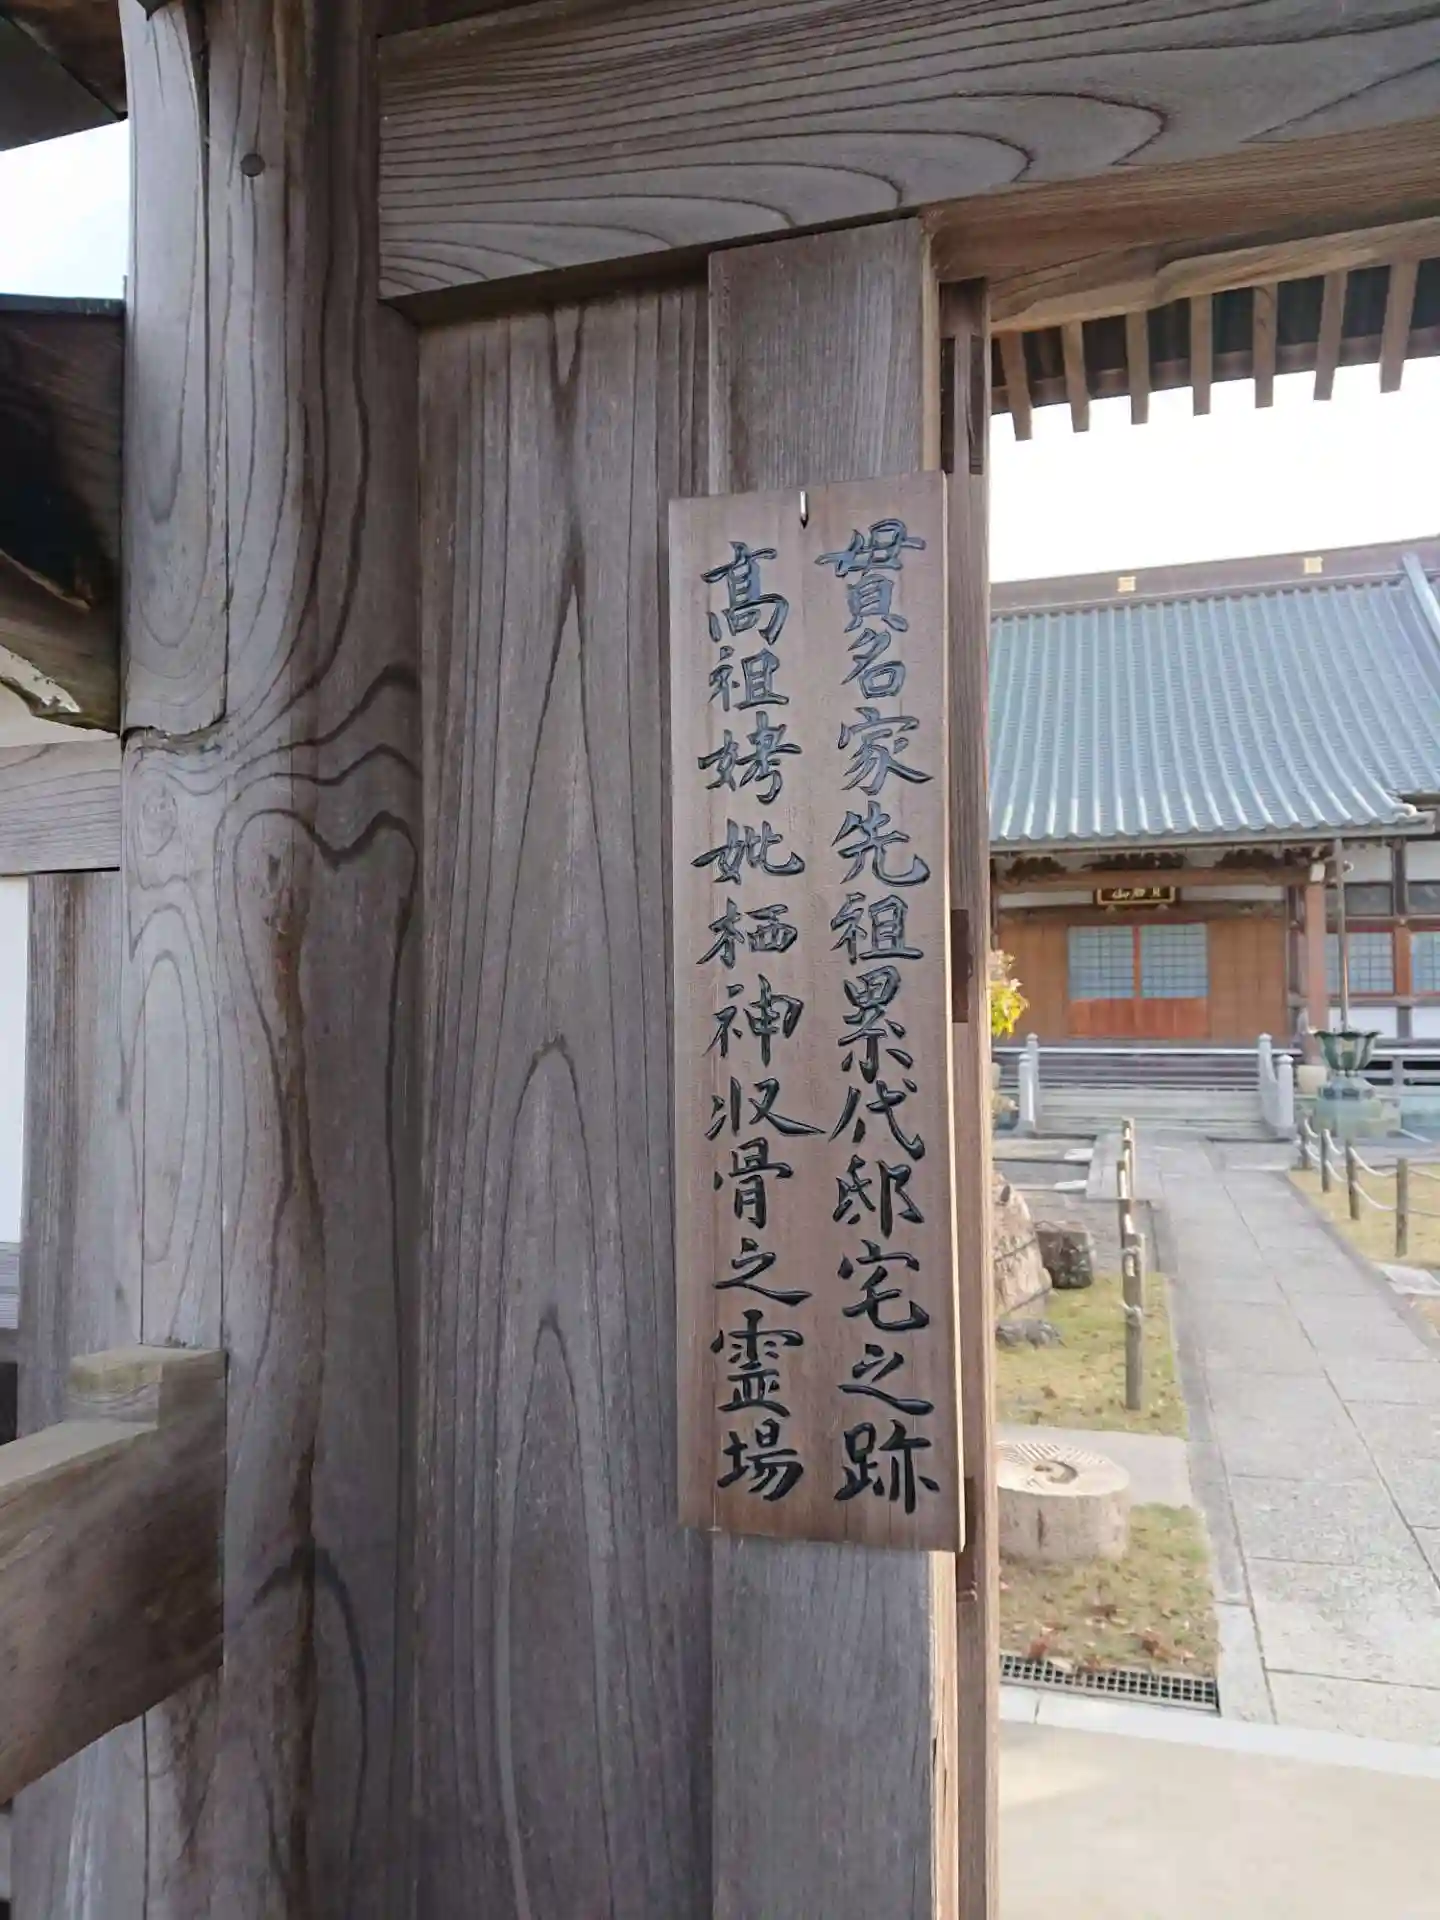 貫名家先祖累代邸宅之跡
髙祖姥妣栖神収骨之霊場